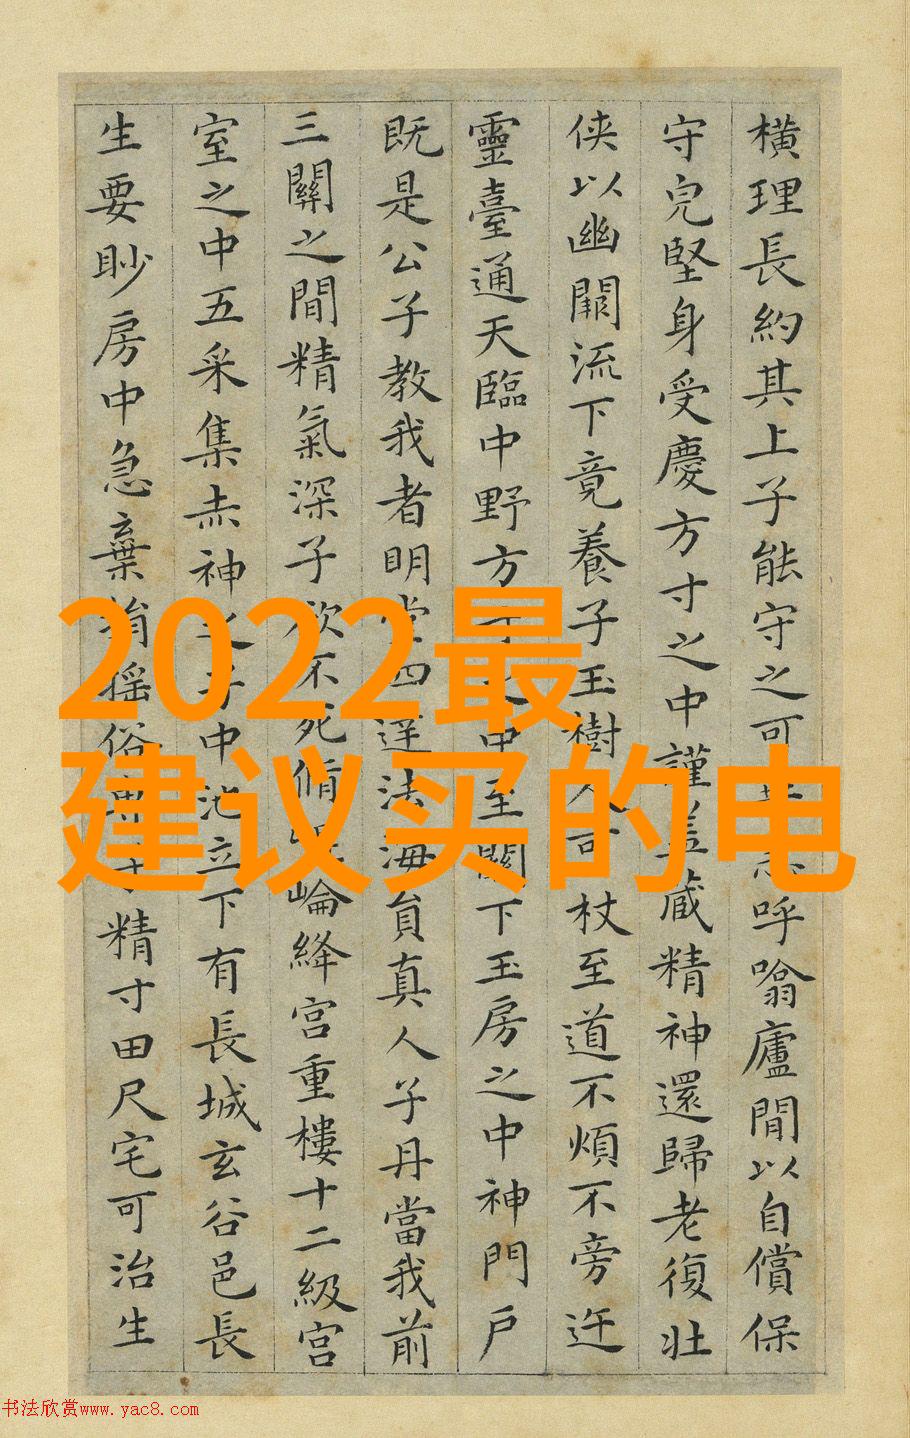 橫理長約其上子能守之可
呼噏廬間以自償保
守皃堅身受慶方寸之中謹蓋藏精神還歸老復壯
俠以幽闕流下竟養子玉樹
可杖至道不煩不旁迕
靈臺通天臨中野方寸之中至關下玉房之中神門戶
既是公子教我者明堂四達法海負真人子丹當我前
三關之間精氣深子欲不死脩崐崘絳宮重樓十二級宮
室之中五采集赤神之子中池立下有長城玄谷邑長
生要眇房中急棄捐搖俗專子精寸田尺宅可治生
2022最
建议买的电
书法欣赏www.yac8.com